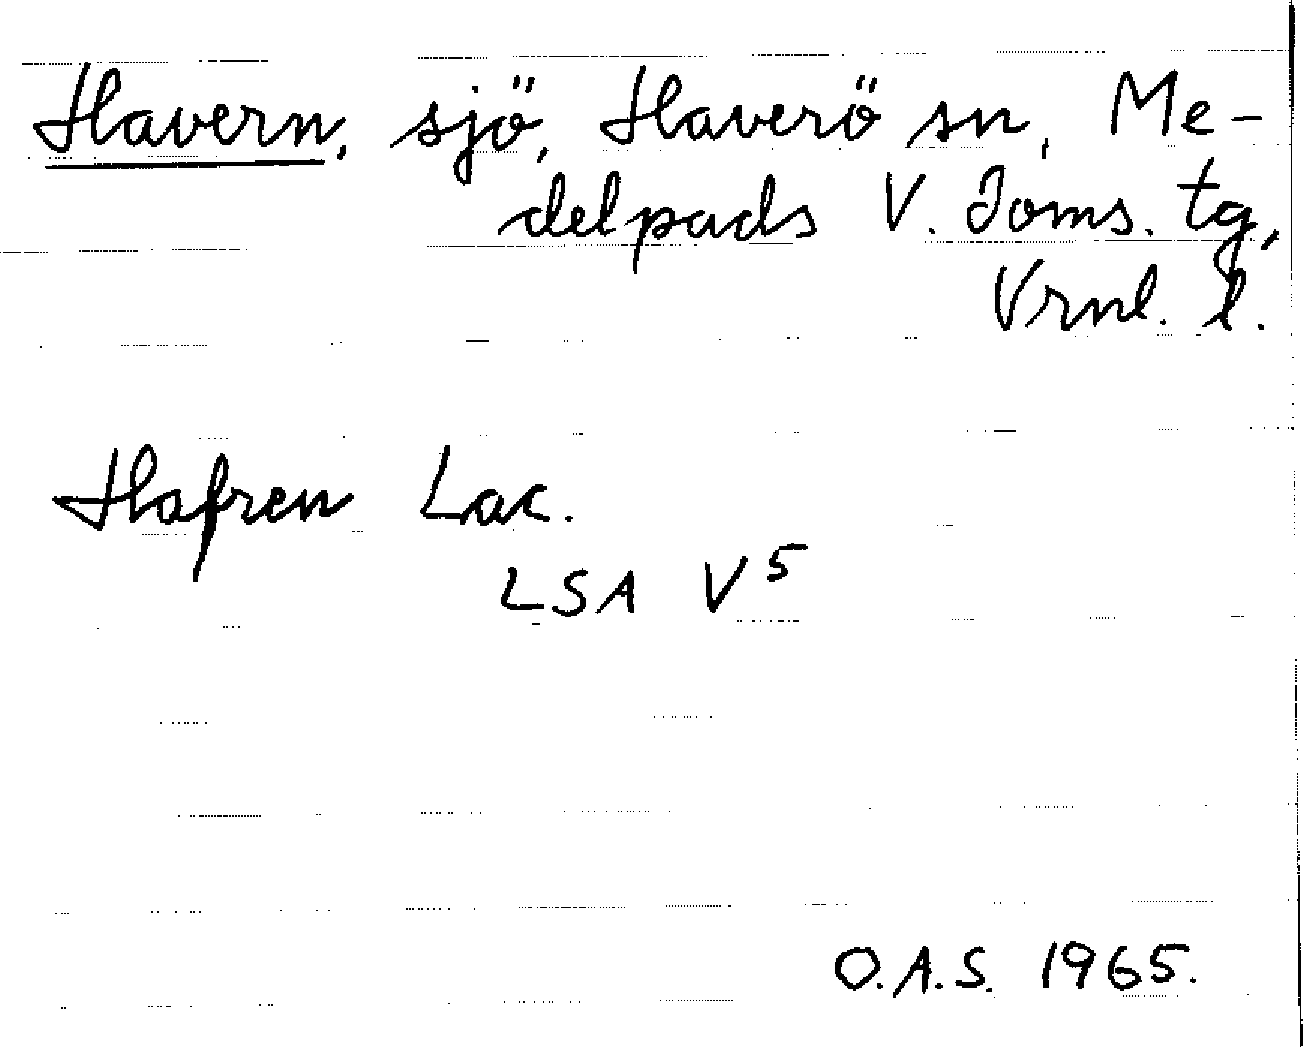 Havern, sjö, Haverö sn, Me-
delpads V. Doms. tg,
Vrnl. l.
Hafren Lac.
LSA V5
O.A.S. 1965.